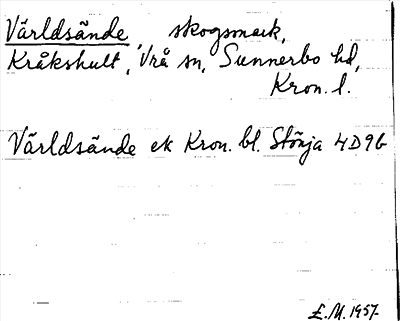 Världsände, skogsmark,
Kråkshult, Vrå sn, Sunnerbo hd,
Kron. l.
Världsände ek Kron. bl. Stönja 4D9b
E.M. 1957.